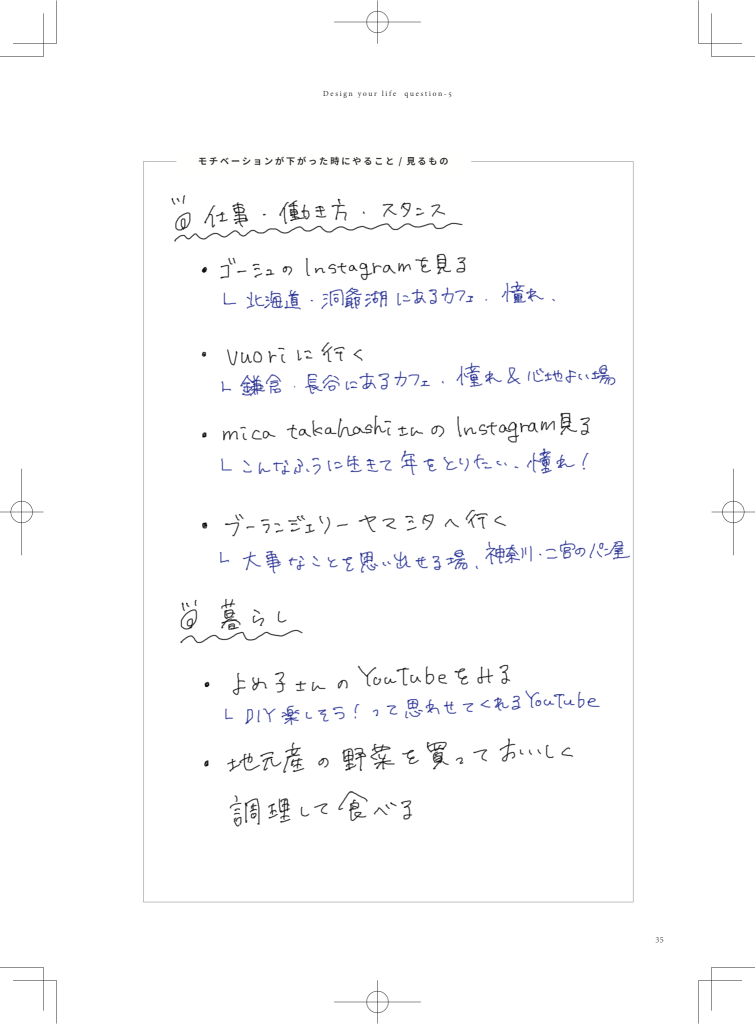 Design your life question-5
モチベーションが下がった時にやること / 見るもの
仕事・働き方・スタンス
・ゴーシュのInstagramを見る
└ 北海道・洞爺湖にあるカフェ、憧れ、
・vuoriに行く
└ 鎌倉・長谷にあるカフェ、憧れ&心地よい場
・mica takahashiさんのInstagram見る
└ こんなふうに生きて年をとりたい、憧れ!
・ブーランジェリーヤマシタへ行く
└ 大事なことを思い出せる場、神奈川・二宮のパン屋
暮らし
・よめ子さんのYouTubeをみる
└ DIY楽しそう!って思わせてくれるYouTube
・地元産の野菜を買っておいしく
調理して食べる
35